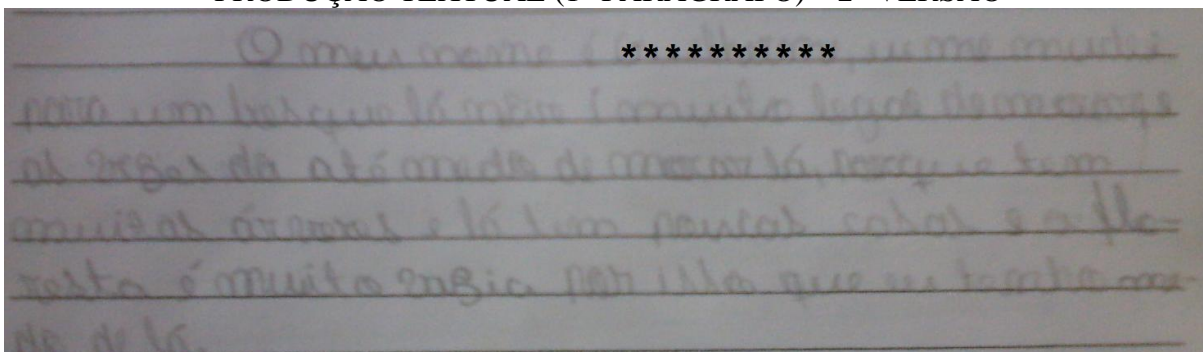 O meu nome é ********** eu me mudei
para um bosque lá não é muito legal de morar
as vezes da até medo de morar lá, porque tem
muitas árvores e lá tem poucas casas e a flo-
resta é muito por isso que eu tenho me-
do de lá.